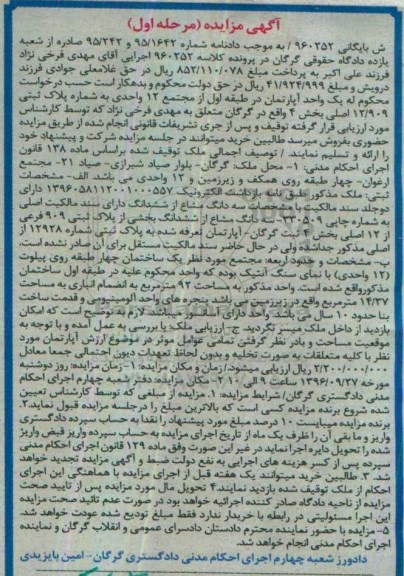 آگهی مزایده (مرحله اول)
ش بایگانی ۹۶۰۲۵۲ / به موجب دادنامه شماره ۹۵/۱۶۴۲ و ۹۵/۲۴۲ صادره از شعبه
یازده دادگاه حقوقی گرگان در پرونده کلاسه ۹۶۰۲۵۲ اجرایی آقای مهدی فرخی نژاد
فرزند علی اکبر به پرداخت مبلغ ۸۵۲/۱۱۰/۰۷۸ ریال در حق غلامعلی جوادی فرزند
درویش و مبلغ ۴۱/۹۲۴/۹۹۹ ریال در حق دولت محکوم و بدهکار است حسب درخواست
محکوم له یک واحد آپارتمان در طبقه اول از مجتمع ۱۲ واحدی به شماره پلاک ثبتی
۱۲/۹۰۹ اصلی بخش ۴ واقع در گرگان متعلق به مهدی فرخی نژاد که توسط کارشناس
مورد ارزیابی قرار گرفته توقیف و پس از جری تشریفات قانونی انجام شده از طریق مزایده
حضوری بفروش میرسد طالبین خرید میتوانند در جلسه مزایده شرکت و پیشنهاد خود
را ارائه و تسلیم نمایند. / توصیف اجمالی ملک توقیف شده براساس ماده ۱۳۸ قانون
اجرای احکام مدنی: ۱- محل ملک: گرگان- بلوار صیاد شیرازی- صیاد ۲۱- مجتمع
ارغوان- چهار طبقه روی همکف و زیرزمین و ۱۲ واحدی می باشد. الف- مشخصات
ثبتی: ملک مذکور طبق نامه بازداشت الکترونیک ۱۳۹۶۰۵۸۱۱۲۰۰۱۰۰۰۵۵۷ دارای
دوجلد سند مالکیت با مشخصات سه دانگ مشاع از ششدانگ دارای سند مالکیت اصلی
به شماره چاپی ۳۳۰۵۰۹- سه دانگ مشاع از ششدانگ بخشی از پلاک ثبتی ۹۰۹ فرعی
از ۱۲ اصلی بخش ۴ ثبت گرگان- آپارتمان تعرفه شده به پلاک ثبتی شماره ۱۲۹۲۸ از
اصلی مذکور جداشده ولی در حال حاضر سند مالکیت مستقل برای آن صادر نشده است.
ب- مشخصات و حدود اربعه: مجتمع مورد نظر یک ساختمان چهار طبقه روی پیلوت
(۱۲ واحدی) با نمای سنگ آنتیک بوده که واحد محکوم علیه در طبقه اول ساختمان
مذکورواقع شده است. واحد مذکور به مساحت ۹۲ مترمربع به انضمام انباری به مساحت
۱۴/۳۷ مترمربع واقع در زیرزمین می باشد پنجره های واحد آلومینیومی و قدمت ساخت
بنا حدود ۱۰ سال می باشد. واحد دارای آسانسور میباشد لازم به توضیح است که امکان
بازدید از داخل ملک میسر نگردید. ج- ارزیابی ملک: با بررسی به عمل آمده و با توجه به
موقعیت مساحت و بادر نظر گرفتن تمامی عوامل موثر در موضوع ارزش آپارتمان مورد
نظر با کلیه متعلقات به صورت تخلیه و بدون لحاظ تعهدات دیون احتمالی جمعا معادل
۲/۲۰۰/۰۰۰/۰۰۰ ریال ارزیابی میشود./ زمان و مکان مزایده: ۱- زمان مزایده: روز دوشنبه
مورخه ۱۳۹۶/۰۹/۲۷ ساعت ۹ الی ۱۰ ۲- مکان مزایده: دفتر شعبه چهارم اجرای احکام
مدنی دادگستری گرگان/ شرایط مزایده: ۱. مزایده از مبلغی که توسط کارشناس تعیین
شده شروع برنده مزایده کسی است که بالاترین مبلغ را درجلسه مزایده قبول نماید.۲.
برنده مزایده میبایست ۱۰ درصد مبلغ مورد پیشنهاد را نقدا به حساب سپرده دادگستری
واریز و ما بقی آن را ظرف یک ماه از تاریخ اجرای مزایده به حساب سپرده واریز قبض واریز
شده را تحویل دایره اجرا نماید در غیر این صورت وفق ماده ۱۲۹ قانون اجرای احکام مدنی
سپرده پس از کسر هزینه های اجرایی به نفع دولت ضبط و آگهی مزایده تجدید خواهد
شد. ۳. طالبین خرید میتوانند یک هفته قبل از اجرای مزایده با هماهنگی این اجرای
احکام از ملک توقیف شده بازدید نمایند.۴ تحویل مال مورد مزایده پس از تایید صحت
مزایده از ناحیه دادگاه صادر کننده اجرائیه خواهد بود در صورت عدم تائید صحت مزایده
این اجرا مسئولیتی در رابطه با خریدار ندارد فقط مبلغ تودیع شده عودت خواهد شد.
۵- مزایده با حضور نماینده محترم دادستان دادسرای عمومی و انقلاب گرگان و نماینده
اجرای احکام مدنی انجام خواهد شد.
دادورز شعبه چهارم اجرای احکام مدنی دادگستری گرگان- امین بایزیدی